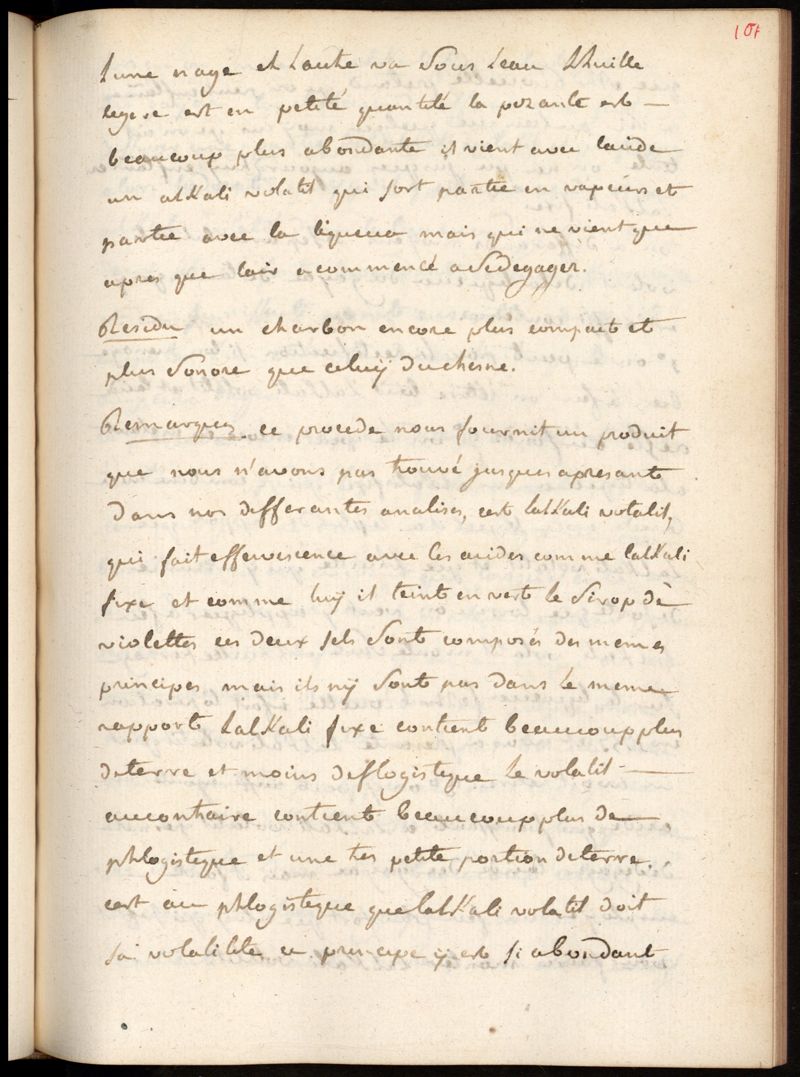 101
Lune nage et Lautre va Sous Leau Lhuille
legere est en petite quantité la pezante est
beaucoup plus abondante il vient avec lacide
un alkali volatil qui sort partie en vapeurs et
partie avec la liqueur mais qui ne vient que
apres que lair a commencé a Sedegager.
Residu un charbon encore plus compact et
plus Sonore que celuy duchesne.
Remarques ce procede nous fournit un produit
que nous n'avons pas trouvé jusques apresant
dans nos differantes analises, cest lalkali volatil,
qui fait effervescence avec les acides comme lalkali
fixe et comme luy il teint en vert le Sirop de
violettes ces deux sels Sont composés des memes
principes mais ils ny Sont pas dans le meme
rapport Lalkali fixe contient beaucoup plus
deterre et moins deflogistique le volatil
aucontraire contient beaucoup plus de
phlogistique et une tres petite portion deterre.
cest au phlogistique que lalkali volatil doit
sa volatilité ce principe y est si abondant